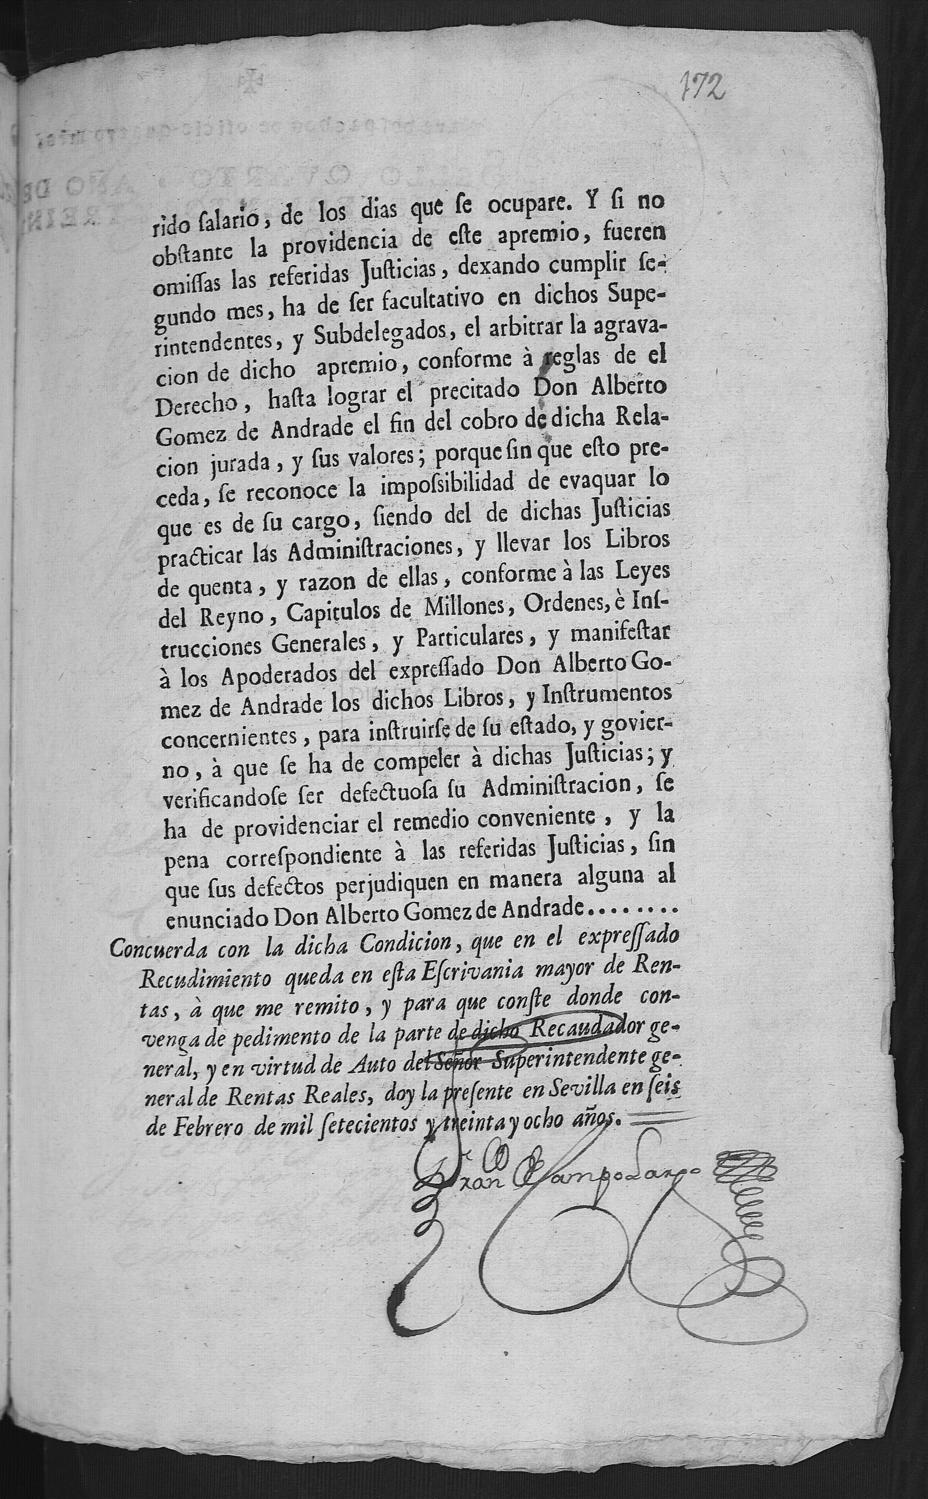 172
rido ſalario, de los dias que ſe ocupare. Y ſi no
obſtante la providencia de eſte apremio, fueren
omiſſas las referidas Juſticias, dexando cumplir ſe-
gundo mes, ha de ſer facultativo en dichos Supe-
rintendentes, y Subdelegados, el arbitrar la agrava-
cion de dicho apremio, conforme à reglas de el
Derecho, haſta lograr el precitado Don Alberto
Gomez de Andrade el fin del cobro de dicha Rela-
cion jurada, y ſus valores; porque ſin que eſto pre-
ceda, ſe reconoce la impoſsibilidad de evaquar lo
que es de ſu cargo, ſiendo del de dichas Juſticias
practicar las Adminiſtraciones, y llevar los Libros
de quenta, y razon de ellas, conforme à las Leyes
del Reyno, Capitulos de Millones, Ordenes, è Inſ-
trucciones Generales, y Particulares, y manifeſtar
à los Apoderados del expreſſado Don Alberto Go-
mez de Andrade los dichos Libros, y Inſtrumentos
concernientes, para inſtruirſe de ſu eſtado, y govier-
no, à que ſe ha de compeler à dichas Juſticias; y
verificandoſe ſer defectuoſa ſu Adminiſtracion, ſe
ha de providenciar el remedio conveniente, y la
pena correſpondiente à las referidas Juſticias, ſin
que ſus defectos perjudiquen en manera alguna al
enunciado Don Alberto Gomez de Andrade........
Concuerda con la dicha Condicion, que en el expreſſado
Recudimiento queda en eſta Eſcrivania mayor de Ren-
tas, à que me remito, y para que conſte donde con-
venga de pedimento de la parte de dicho Recaudador ge-
neral, y en virtud de Auto del Señor Superintendente ge-
neral de Rentas Reales, doy la preſente en Sevilla en ſeis
de Febrero de mil ſetecientos y treinta y ocho años.
Fran Campo Largo